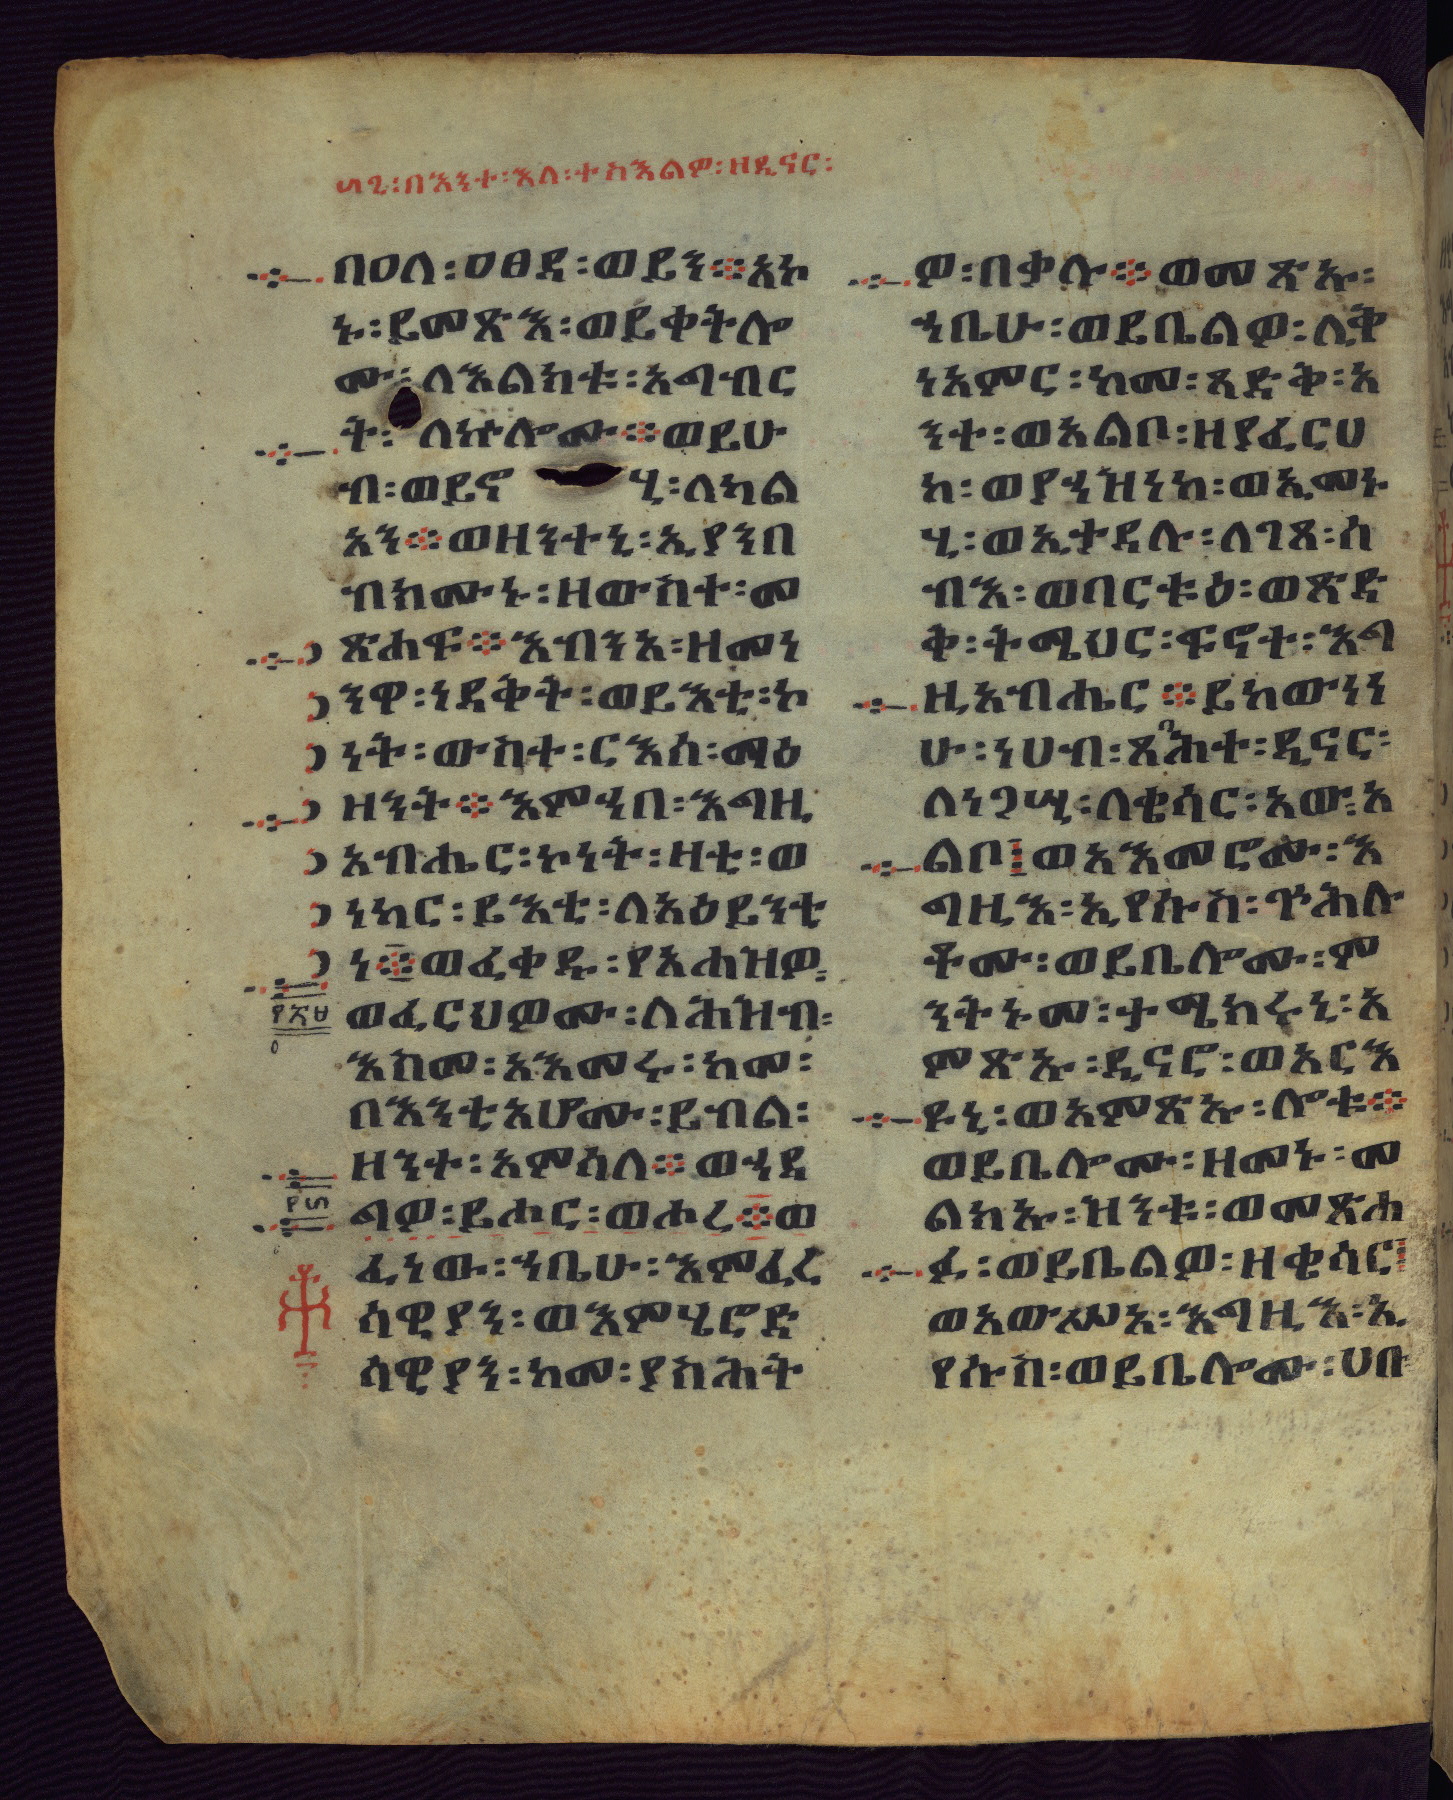 ፴፫፡በእንተ፡እለ፡ተስእልዎ፡ዘዲናር፡
በዐለ፡ዐፀደ፡ወይን፨አኮ
ኑ፡ይመጽእ፡ወይቀትሎ
ሙ፡ለእልክቱ፡አግብር
ት፡ለኵሎሙ፨ወይሁ
ብ፡ወይኖ ሂ፡ለካል
አን፨ወዘንተኒ፡ኢያንበ
ብክሙኑ፡ዘውስተ፡መ
ጽሐፍ፨እብንአ፡ዘመነ
ንዋ፡ነደቅት፡ወይእቲ፡ኮ
ነት፡ውስተ፡ርእሰ፡ማዕ
ዘንት፨እምኀበ፡እግዚ
አብሔር፡ኮነት፡ዛቲ፡ወ
ነካር፡ይእቲ፡ለአዕይንቲ
ነ፨ወፈቀዱ፡የአሐዝዎ፡
ወፈርህዎሙ፡ለሕዝብ፡
እስመ፡አእመሩ፡ከመ፡
በእንቲአሆሙ፡ይብል፡
ዘንተ፡አምሳለ፨ወኀደ
ግዎ፡ይሖር፡ወሖረ፨ወ
ፈነው፡ኀቤሁ፡እምፈረ
ሳዊያን፡ወእምሄሮድ
ሳዊያን፡ከመ፡ያስሕት
ዎ፡በቃሉ፨ወመጽኡ፡
ኀቤሁ፡ወይቤልዎ፡ሊቅ
ነአምር፡ከመ፡ጻድቅ፡አ
ንተ፡ወአልቦ፡ዘያፈርሀ
ከ፡ወያኀዝነከ፡ወኢመኑ
ሂ፡ወኢታደሉ፡ለገጸ፡ሰ
ብእ፡ወበርቱዕ፡ወጽድ
ቅ፡ትሜህር፡ፍኖተ፡እግ
ዚአብሔር፨ይከውነነ
ሁ፡ነሀብ፡ጸባሕተ፡ዲናር፡
ለነጋሢ፡ለቄሳር፡አው፡አ
ልቦ፤ወአእመሮሙ፡እ
ግዚእ፡ኢየሱስ፡ጕሕሉ
ቶሙ፡ወይቤሎሙ፡ም
ንትኑመ፡ታሜክሩኒ፡አ
ምጽኡ፡ዲናሮ፡ወአርእ
ዩኒ፡ወአምጽኡ፡ሎቱ፨
ወይቤሎሙ፡ዘመኑ፡መ
ልክኡ፡ዝንቱ፡ወመጽሐ
ፉ፡ወይቤልዎ፡ዘቄሳር፤
ወአውሥአ፡እግዚእ፡ኢ
የሱስ፡ወይቤሎሙ፡ሀቡ